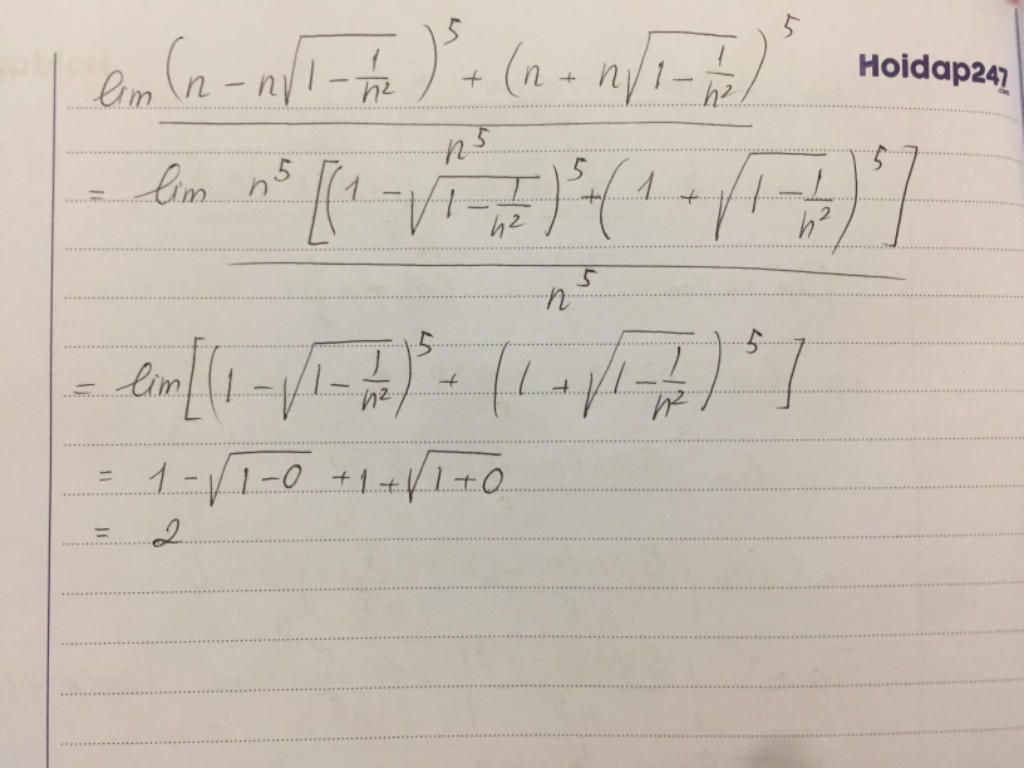 lim ((n - n√(1 - 1/n²))⁵ + (n + n√(1 - 1/n²))⁵) / n⁵
Hoidap247.com
= lim n⁵ [(1 - √(1 - 1/n²))⁵ + (1 + √(1 - 1/n²))⁵] / n⁵
= lim [(1 - √(1 - 1/n²))⁵ + (1 + √(1 - 1/n²))⁵]
= 1 - √(1-0) + 1 + √(1+0)
= 2